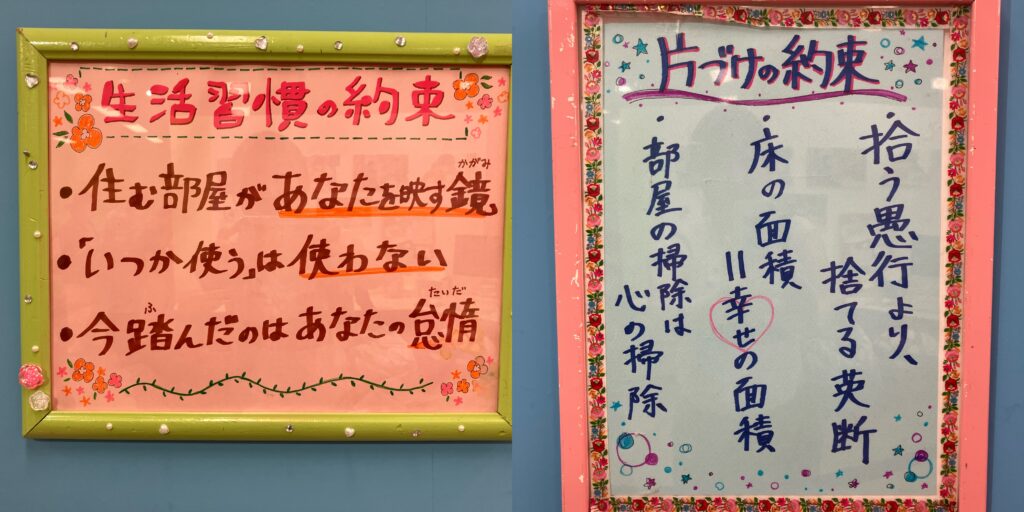 生活習慣の約束
・住む部屋があなたを映す鏡
かがみ
・「いつか使う」は使わない
・今踏んだのはあなたの怠惰
ふ
たいだ
片づけの約束
・拾う愚行より、
捨てる英断
・床の面積
=幸せの面積
・部屋の掃除は
心の掃除